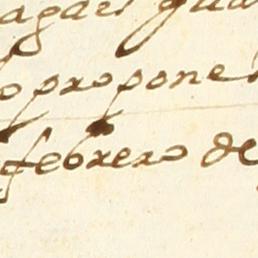 o propone
febrero de